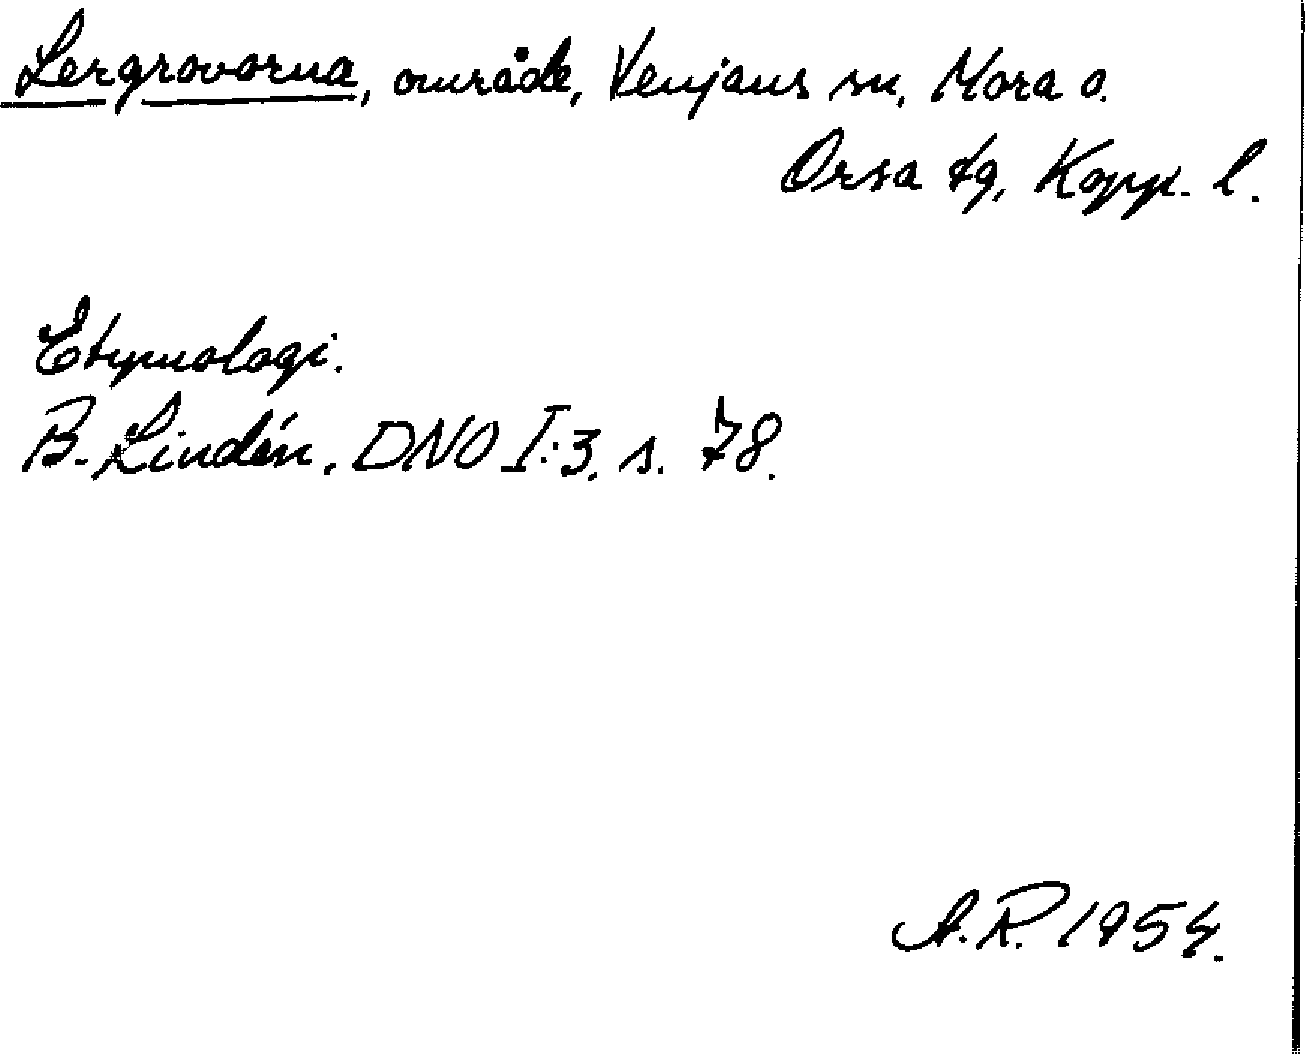 Lergrovorna, område, Venjans sn, Mora o.
Orsa tg, Kopp. l.
Etymologi.
B. Lindén. DNO I:3. s. 78.
A.R. 1954.